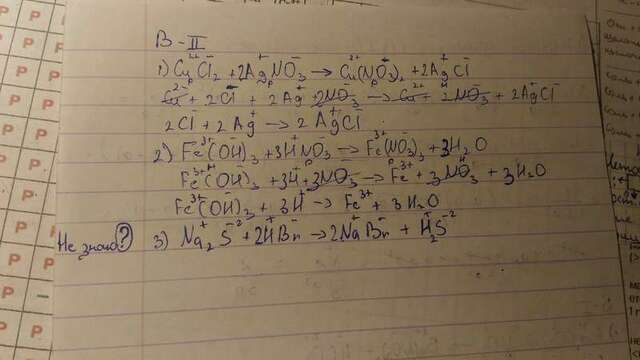 В-II
1) CuCl₂ + 2AgNO₃ → Cu(NO₃)₂ + 2AgCl
Cu²⁻ + 2Cl⁻ + 2Ag⁺ + 2NO₃⁻ → Cu²⁺ + 2NO₃⁻ + 2AgCl
2Cl⁻ + 2Ag⁺ → 2AgCl
2) Fe³⁺(OH)₃⁻ + 3H⁺NO₃⁻ → Fe³⁺(NO₃)₃⁻ + 3H₂O
Fe³⁺(OH)₃⁻ + 3H⁺ + 3NO₃⁻ → Fe³⁺ + 3NO₃⁻ + 3H₂O
Fe³⁺(OH)₃⁻ + 3H⁺ → Fe³⁺ + 3H₂O
Не знаю? 3) Na₂⁺S⁻² + 2H⁺Br⁻ → 2Na⁺Br⁻ + H₂⁺S⁻²